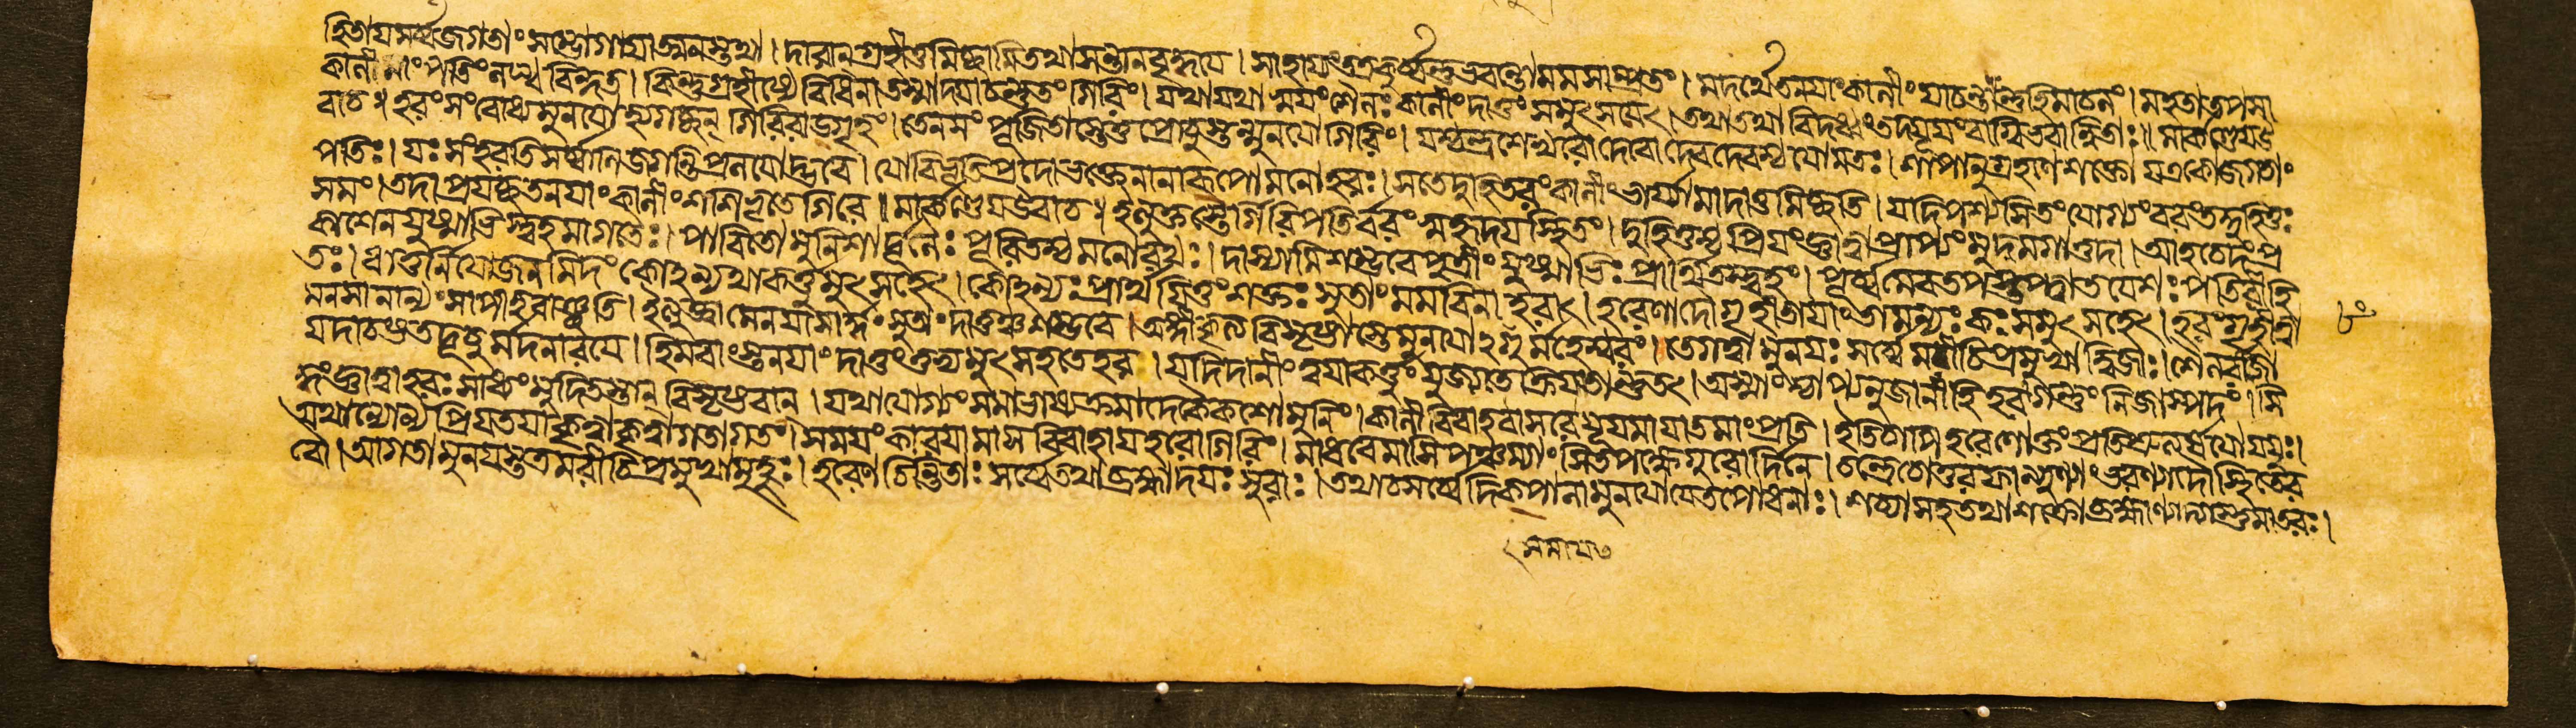 হিতায়সর্ব্বজগতাং সম্ভোগায়াত্মনস্তথা। দারান্ গ্রহীতুমিচ্ছামি তথা সন্তানবৃদ্ধয়ে। সাহায্যং তত্র কুর্ব্বন্তু ভবন্তো মম সাম্প্রতং। মদর্থে তনয়াং কালীং যাচন্তাং তুহিনাচলং। মহতা তপসা
কালী মাং পতিং বিন্দতু। কিন্তু গ্রহীষ্যে বিধিনা তস্মাদ্যাচন্তু তং গিরিং। যথা যথা স্বয়ং শৈলঃ কালীং দাতুং সমুৎসহেৎ। তথা তথা বিদধ্বং যূয়ং বাগ্বিভবান্বিতাঃ॥ মার্কণ্ডেয় উ
বাচ॥ হরং সংবোধ্য মুনয়ো গচ্ছন্ গিরিরাড্গৃহং। তেন সংপূজিতাস্তে তু প্রোচুস্তন্মুনয়ো গিরিং। যশ্চন্দ্রশেখরো দেবো দেবদেবশ্চ যো মতঃ। শাপানুগ্রহণে শক্তো য একো জগতাং
পতিঃ। যঃ সংহরতি সর্ব্বাণি জগন্তি প্রলয়োদ্ভবে। যো বিভূতিপ্রদো ভক্তে নানারূপো মনোহরঃ। স তে দুহিতরং কালীং ভার্য্যামাদাতুমিচ্ছতি। যদি পশ্যসি তং যোগ্যং বরং তদ্দুহিতুঃ
সমং। তদা প্রযচ্ছ তনয়াং কালীং শশিভৃতে গিরে॥ মার্কণ্ডেয় উবাচ॥ ইত্যুক্তস্তৈর্গিরিপতির্বরং স্বহৃদয়স্থিতং। দুহিতুশ্চ প্রিয়ং জ্ঞাত্বা প্রাপ্যং মুদমগাত্তদা। আহ চেদং প্র
কাশেন যুষ্মাভিস্ত্বহমাগতৈঃ। পাবিতো মুনিশার্দ্দূলৈঃ পূরিতশ্চ মনোরথঃ। দাস্যামি শম্ভবে পুত্রীং যুষ্মাভিঃ প্রার্থিতস্ত্বহং। পূর্ব্বমেব তপস্তপ্ত্বা তয়েশঃ পতিরীহি
তঃ। ধাতুর্নিয়োজনমিদং কোহন্যথা কর্ত্তুমুৎসহেৎ। কোহন্যঃ প্রার্থয়িতুং শক্তঃ সুতাং মম বিনা হরাৎ। হরেণাদৌ গৃহীতা যা তামন্যঃ কঃ সমুৎসহেৎ। হরং গৃহীত্বা
মনসা নান্যং সাপীহ বাঞ্ছতি। ইত্যুক্ত্বা মেনয়া সার্দ্ধং সুতাং দাতুঞ্চ শম্ভবে। অঙ্গীকৃত্য বিসৃষ্টাস্তে মুনীন্ মহেশ্বরং। তে গত্বা মুনয়ঃ সর্ব্বে মরীচিপ্রমুখা দ্বিজাঃ। শৈলরাজা
যদাচষ্ট তদূচুর্মদনারয়ে। হিমবাংস্তনয়াং দাতুং তুভ্যমুৎসহতে হর। যদিদানীং ত্বয়া কর্ত্তুং যুজ্যতে ক্রিয়তান্তু তৎ। অস্মাংশ্চাপ্যনুজানীহি হর গন্তুং নিজাস্পদং। সি
দ্ধং জ্ঞাত্বা হরঃ সাধ্যং মুদিতস্তান্ বিসৃষ্টবান্। যথাযোগ্যং সমাভাষ্য ক্রমাদেকৈকশো মুনিং। কালীবিবাহবাসরে যূয়মায়াত মাং প্রতি। ইতি হরেণোক্তং প্রতিশ্রুত্যর্ষয়ো যযুঃ।
অথান্যোন্যপ্রিয়তয়া কৃত্বা কৃত্বা গতাগতং। সময়ং কারয়ামাস বিবাহায় হরো গিরিং। মাধবে মাসি পঞ্চম্যাং সিতপক্ষে গুরোর্দিনে। চন্দ্রে চোত্তরফাল্গুন্যাং ভরণ্যাদৌ স্থিতে র
বৌ। আগতা মুনয়স্তত্র মরীচিপ্রমুখা মুহুঃ। হরেণ চিন্তিতাঃ সর্ব্বে তথা ব্রহ্মাদয়ঃ সুরাঃ। তথা চ সর্ব্বে দিক্পালা মুনয়ো যে তপোধনাঃ। শচ্যা সহ তথা শক্রো ব্রহ্মাণ্যাদ্যাস্তু মাতরঃ।
৮৮